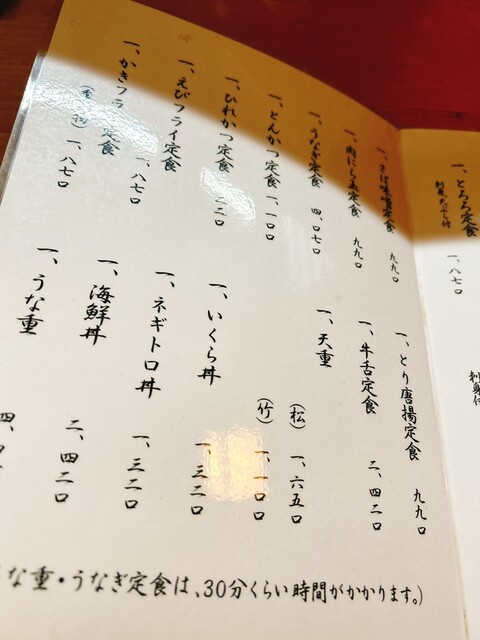 一、とろろ定食
一、八七〇
刺身付
一、さば味噌定食 九九〇
一、肉にら玉定食 九九〇
一、うなぎ定食 四、〇七〇
一、とんかつ定食 一、一〇〇
一、ひれかつ定食
一、えびフライ定食 一、八七〇
一、かきフライ定食
一、八七〇
一、とり唐揚定食 九九〇
一、牛舌定食 二、四二〇
一、天重
(松) 一、六五〇
(竹) 一、一〇〇
一、いくら丼 一、三二〇
一、ネギトロ丼 一、三二〇
一、海鮮丼 二、四二〇
一、うな重
な重・うなぎ定食は、30分くらい時間がかかります。)